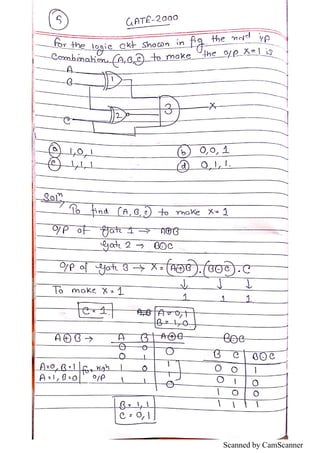 5
GATE-2000
For the logic ckt shown in fig the reqd i/p
Combination (A,B,C) to make the o/p X=1 is
A
B
1
3
X
2
C
(a) 1,0,1 (b) 0,0,1
(c) 1,1,1 (d) 0,1,1.
Soln
To find (A,B,C) to make X=1
O/p of gate 1 → A⊕B
Gate 2 → B⊙C
O/p of gate 3 → X = (A⊕B).(B⊙C).C
↓ ↓ ↓
To make X=1 1 1 1
C=1 A=0,1
B=1,0
A⊕B → A B A⊕B B⊙C
0 0 0 B C B⊙C
0 1 1 0 0 1
A=0, B=1 for high 1 0 1 0 1 0
A=1, B=0 o/p 1 1 0 1 0 0
1 1 1
B=1,1
C=0,1
Scanned by CamScanner